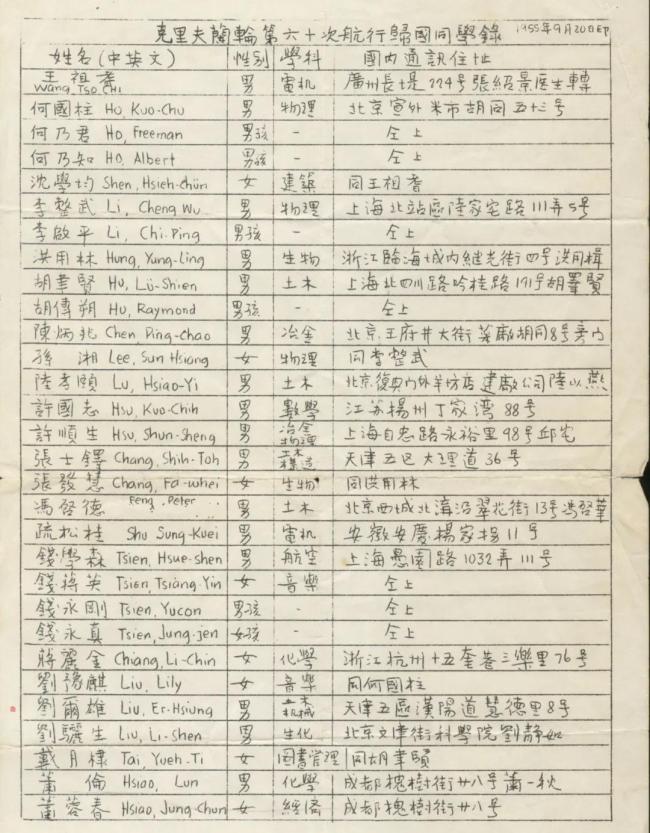 克里夫蘭輪第六十次航行歸國同學錄 1955年9月20日印
姓名(中英文) 性别 學科 國内通訊住址
王祖耆 Wang, Tso Chi 男 電机 廣州長堤224号張紹景医生轉
何國柱 Ho, Kuo-Chu 男 物理 北京宣外米市胡同五十三号
何乃君 Ho, Freeman 男孩 - 仝上
何乃知 Ho, Albert 男孩 - 仝上
沈學均 Shen, Hsieh-chün 女 建築 同王祖耆
李整武 Li, Cheng Wu 男 物理 上海北站區陸家宅路111弄5号
李啟平 Li, Chi-Ping 男孩 - 仝上
洪用林 Hung, Yung-Ling 男 生物 浙江臨海城内継光街四号洪用楫
胡聿賢 Hu, Lü-Shien 男 土木 上海北四川路吟桂路171号胡
胡傳朔 Hu, Raymond 男孩 - 仝上
陳炳兆 Chen, Ping-Chao 男 冶金 北京王府井大街菜廠胡同8号旁内
孫湘 Lee, Sun Hsiang 女 物理 同李整武
陸孝頤 Lu, Hsiao-Yi 男 土木 北京復興门外羊坊店建廠公司陸以燕
許國志 Hsu, Kuo-Chih 男 數學 江苏揚州丁家湾88号
許順生 Hsu, Shun-Sheng 男 冶金物理 上海自忠路永裕里98号邱宅
張士鐸 Chang, Shih-Toh 男 土木構造 天津五区大理道36号
張發慧 Chang, Fa-whei 女 生物 同洪用林
馮啓德 Feng, Peter 男 土木 北京西城北海沿翠花街13号馮啓華
疏松桂 Shu Sung-Kuei 男 電机 安徽安慶楊家拐11号
錢學森 Tsien, Hsue-shen 男 航空 上海愚園路1032弄111号
錢蔣英 Tsien, Tsiang-Yin 女 音樂 仝上
錢永剛 Tsien, Yucon 男孩 - 仝上
錢永真 Tsien, Jung-jen 女孩 - 仝上
蔣麗金 Chiang, Li-Chin 女 化學 浙江杭州十五奎巷三樂里76号
劉豫麒 Liu, Lily 女 音樂 同何國柱
劉爾雄 Liu, Er-Hsiung 男 土木机械 天津五區漢陽道慧德里8号
劉驪生 Liu, Li-Shen 男 生化 北京文津街科學院劉静如
戴月棣 Tai, Yueh-Ti 女 圖書管理 同胡聿賢
蕭倫 Hsiao, Lun 男 化學 成都槐樹街廿八号蕭一秋
蕭蓉春 Hsiao, Jung-Chun 女 經濟 成都槐樹街廿八号